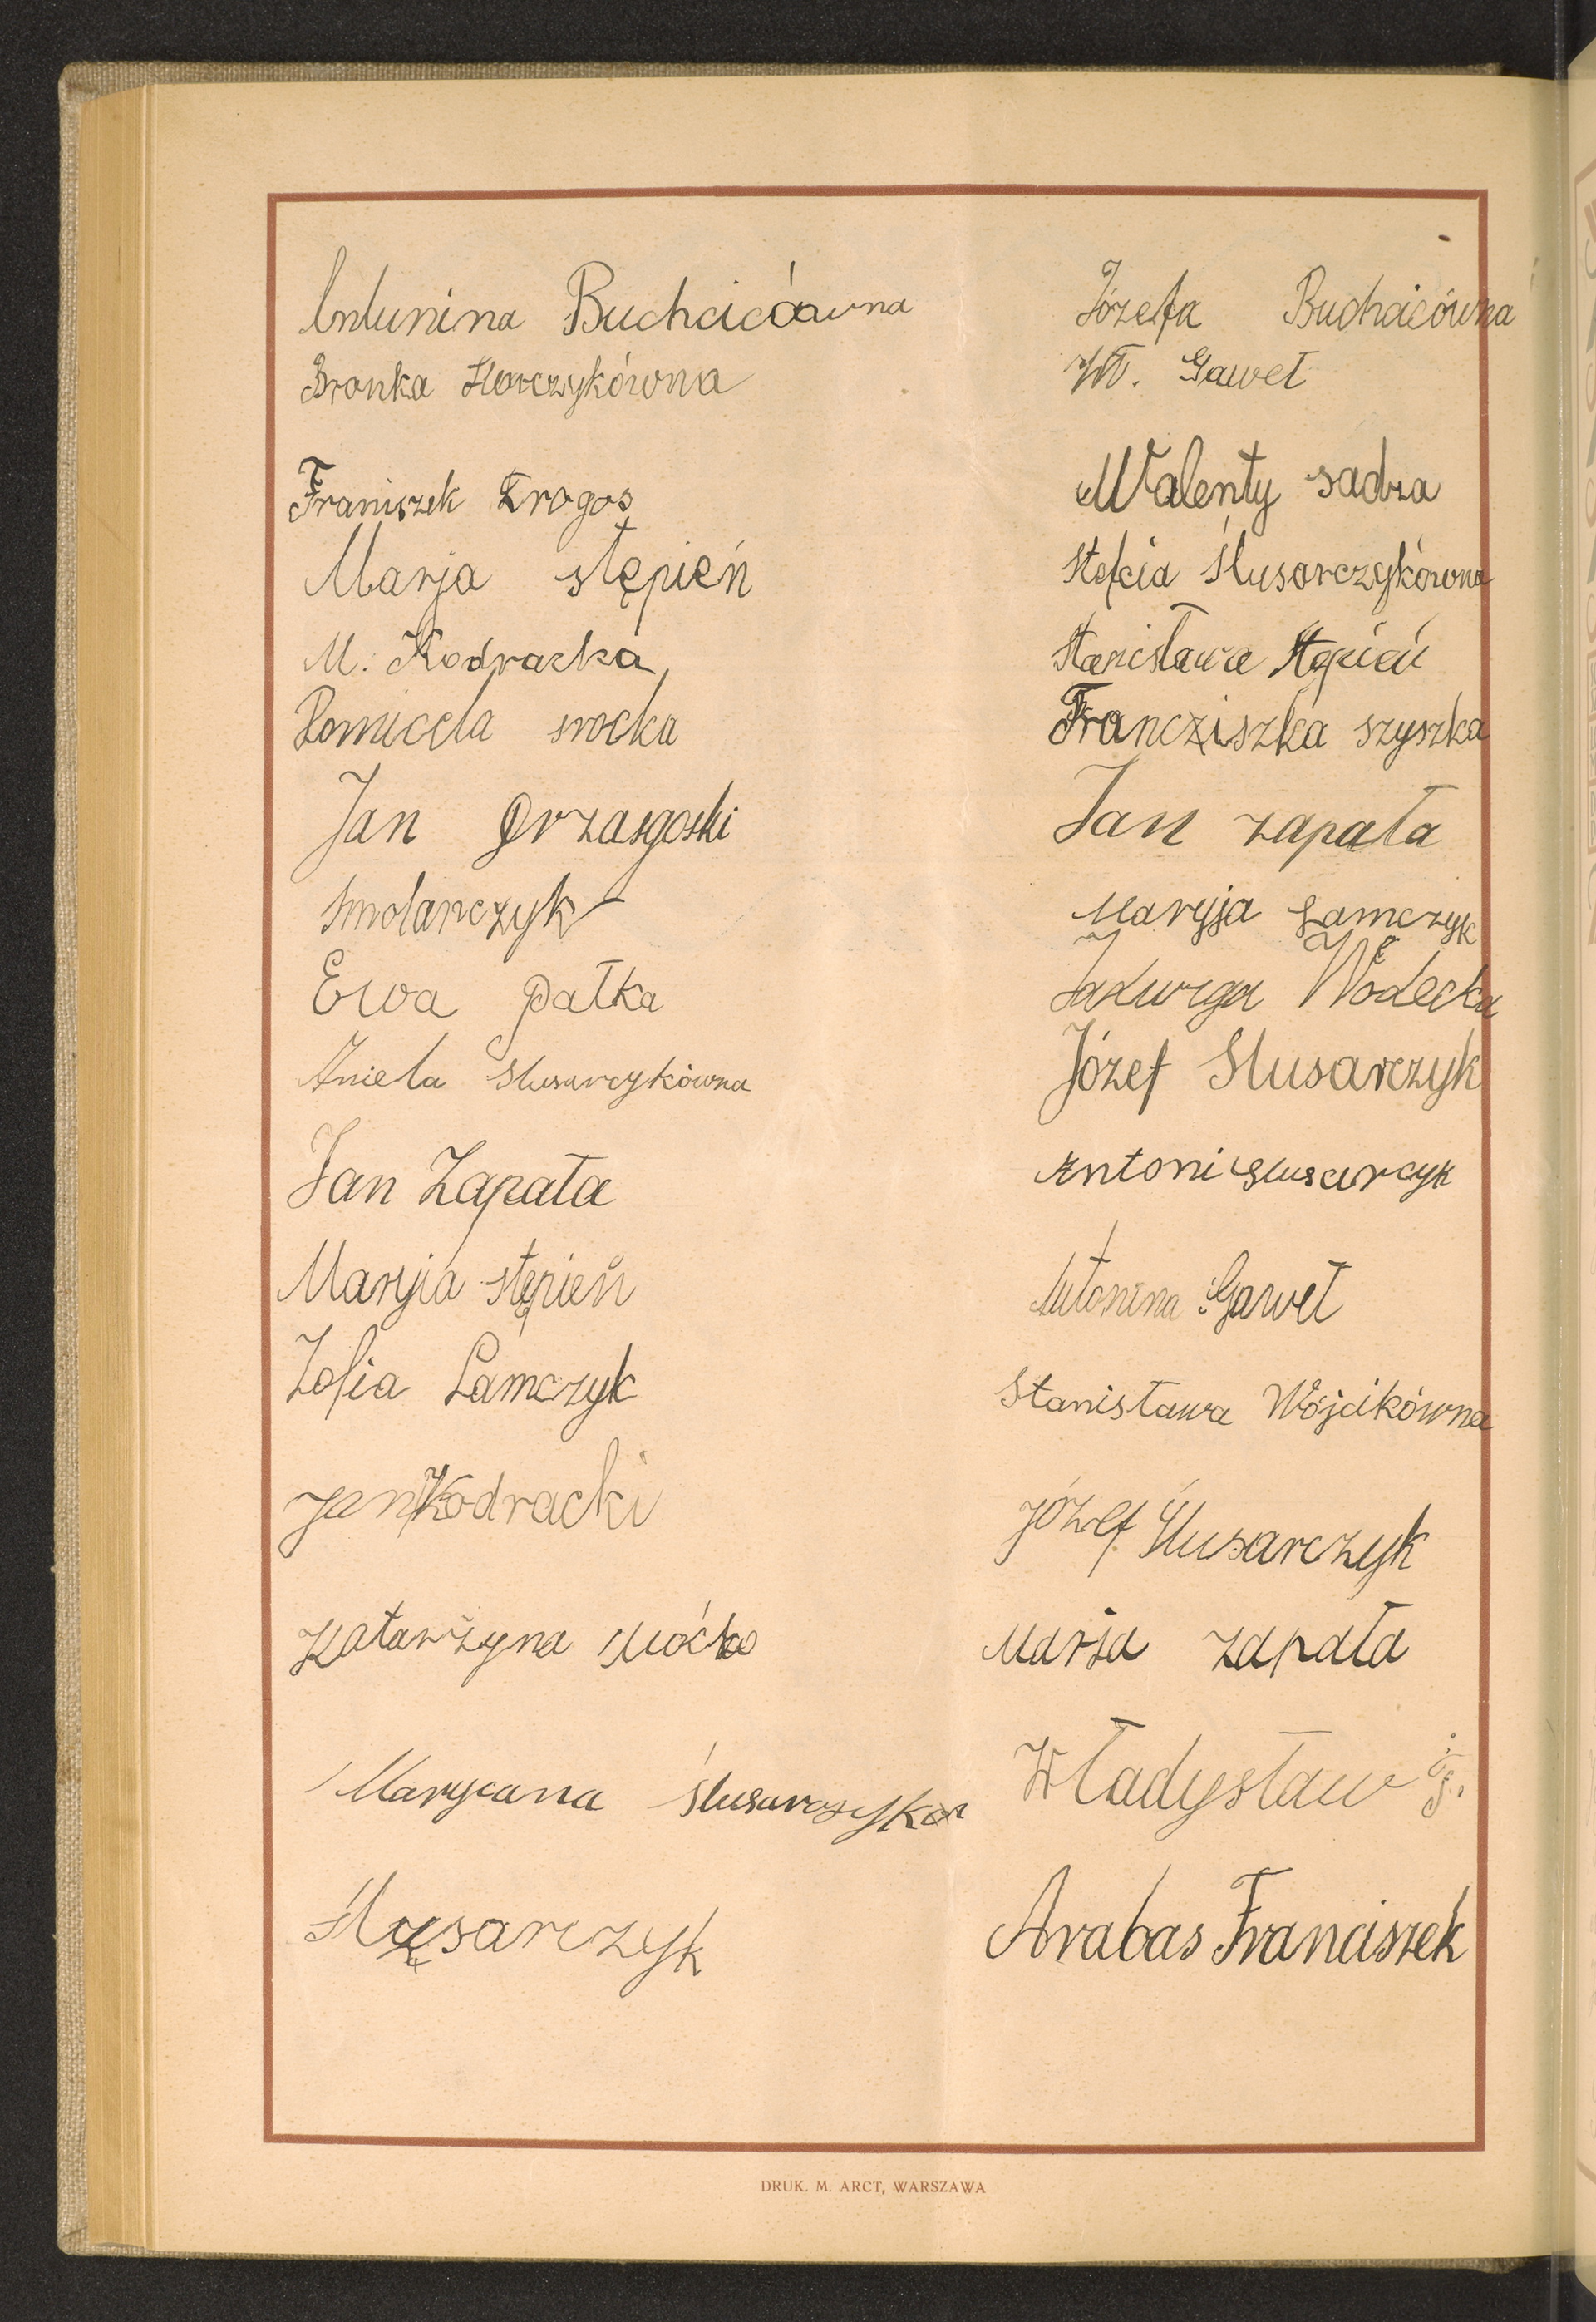 Antunina Buchcicówna
Bronka Skorczykówna
Franiszek Drogos
Marja stępień
M. Kodracka
Pomicela srocka
Jan Brzasgoski
Smolarczyk
Ewa Pałka
Aniela Slusarcykówna
Jan Zapała
Maryja stępień
Zofia Lamczyk
Jan Kodracki
Katarżyna
Maryanna Ślusarczyk
Slusarczyk
Józefa Buchcicówna
Wł. Gaweł
Walenty sadza
Stefcia Ślusarczykówna
Stanisława Stępień
Francziszka szyszka
Jan zapała
Maryja Lamczyk
Jadwiga Wódecka
Józef Slusarczyk
Antoni Slusarcyk
Antonina Gaweł
Stanisława Wójcikówna
Józef Ślusarczyk
Marja zapała
Władysław G.
Arabas Franciszek
DRUK. M. ARCT, WARSZAWA